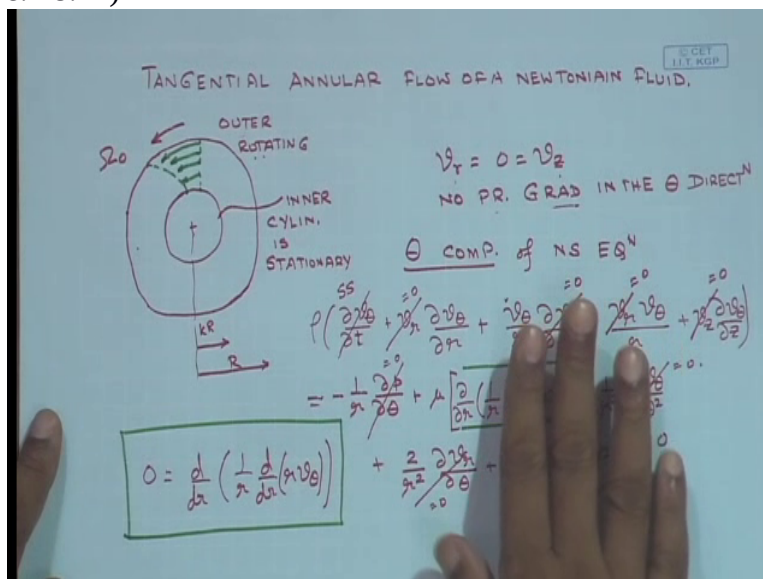 © CET
I.I.T. KGP
TANGENTIAL ANNULAR FLOW OF A NEWTONIAIN FLUID.
Ω0
OUTER
ROTATING
INNER
CYLIN.
IS
STATIONARY
kR
R
ϑr = 0 = ϑz
NO PR. GRAD IN THE θ DIRECTᴺ
θ COMP. of NS EQᴺ
SS =0 =0 =0 =0
ρ(∂ϑθ/∂t + ϑr ∂ϑθ/∂r + ϑθ ∂ ϑr ϑθ/r + ϑz ∂ϑθ/∂z)
= - 1/r ∂p/∂θ =0 + μ[∂/∂r (1/r =0.
+ 2/r² ∂ϑr/∂θ =0 + 0
0 = d/dr (1/r d/dr (rϑθ))